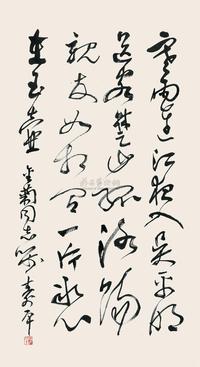 寒雨连江夜入吴平明
送客楚山孤洛阳
亲友如相问一片冰心
在玉壶 同志属